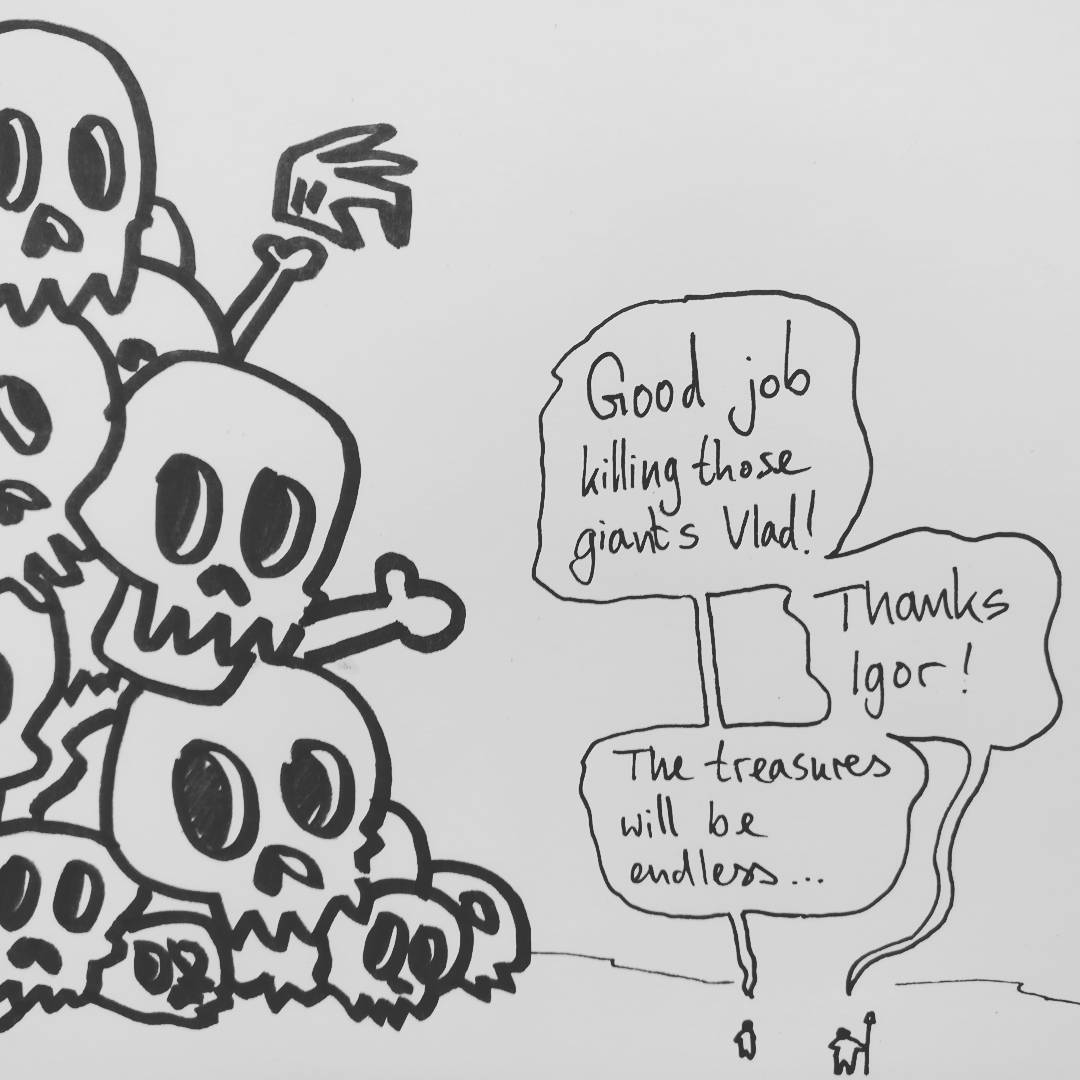 Good job
killing those
giants Vlad!
Thanks
Igor!
The treasures
will be
endless...